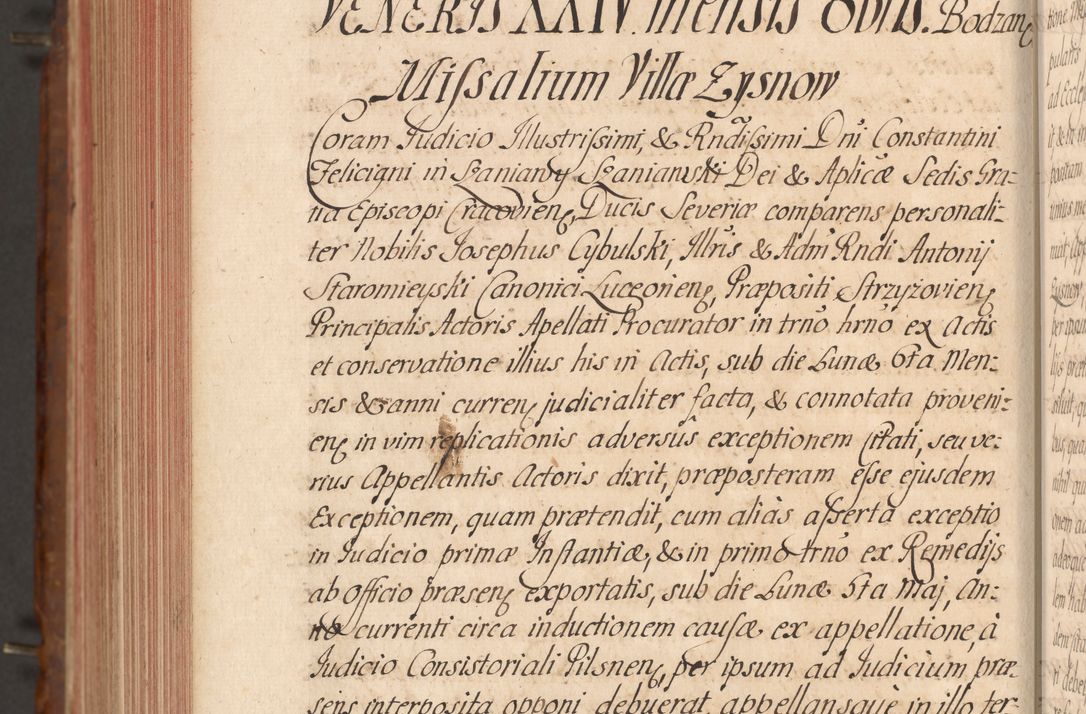 VENERIS XXIV. mensis 8bris. Bodzanȩ
Missalium Villæ Zysnow
Coram Iudicio Illustrissimi, & Rndissimi Dni Constantini
Feliciani in Szaniawy Szaniawski Dei & Aplicæ Sedis Gra=
tia Episcopi Cracovienȩ, Ducis Severiæ comparens personali=
ter Nobilis Josephus Cybulski, Illris & Adm Rndi Antonij
Staromieyski Canonici Luceorienȩ, Præpositi Strzyzovienȩ
Principalis Actoris Apellati Procurator in trno hrno ex Actis
et conservatione illius his in Actis, sub die Lunæ 6ta Men=
sis & anni currenȩ judicialiter facta, & connotata proveni=
enȩ in vim replicationis adversus exceptionem Citati, seu ve=
rius Appellantis Actoris dixit, præposteram esse ejusdem
Exceptionem, quam prætendit, cum aliàs asserta exceptio
in Iudicio primæ Instantiæ, & in primo trno ex Remedijs
ab Officio præsenȩ exportatis, sub die Lunæ 5ta Maj, An=
no currenti circa inductionem causæ ex appellatione, à
Iudicio Consistoriali Pilsnenȩ, per ipsum ad Iudicium præ=
sens interposita opponi debuerat, appellansquè in illo ter=